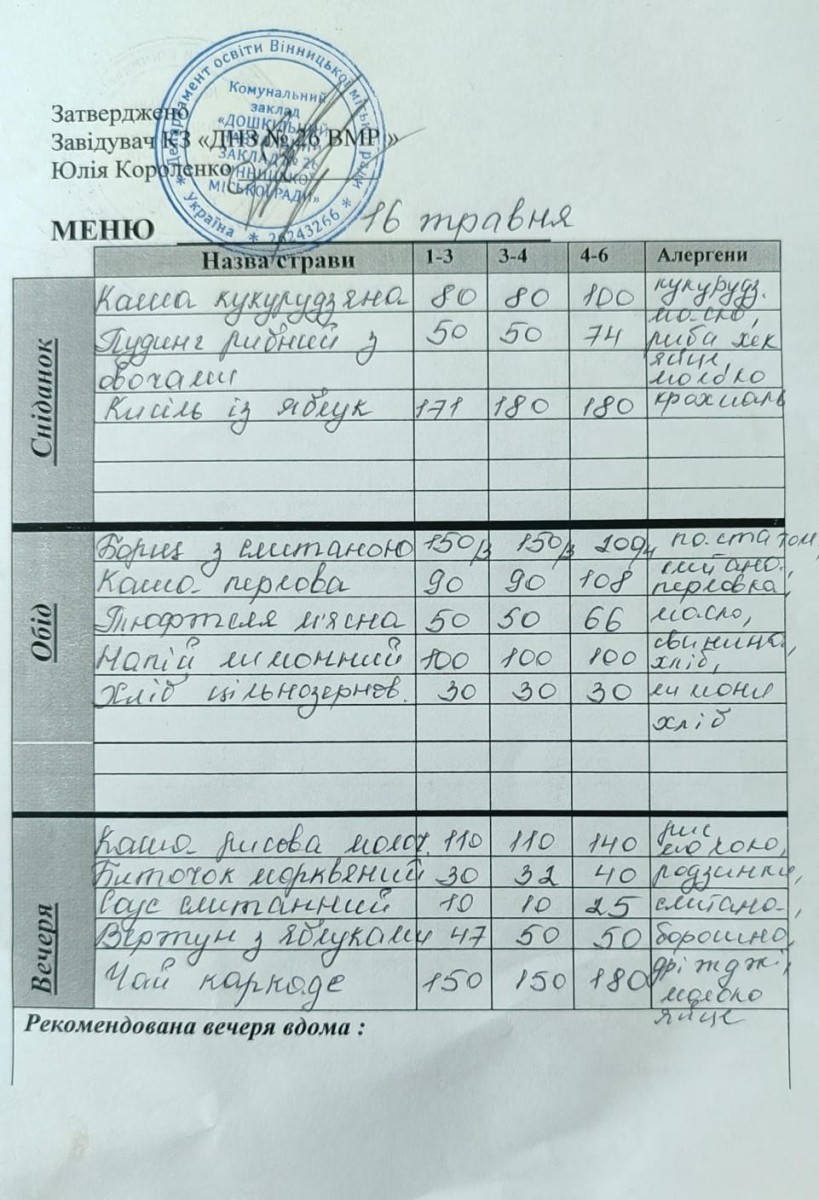 Департамент освіти Вінницької міської ради
Комунальний
заклад
«ДОШКІЛЬНИЙ
ЗАКЛАД № 26
ВІННИЦЬКОЇ
МІСЬКОЇ РАДИ»
* Україна * 26243266 *
Затверджено
Завідувач КЗ «ДНЗ № 26 ВМР »
Юлія Короленко
МЕНЮ 16 травня
Назва страви 1-3 3-4 4-6 Алергени
Сніданок
Каша кукурудзяна 80 80 100 кукурудз.
масло,
Пудинг рибний з 50 50 74 риба хек
яйце,
овочами молоко
Кисіль із яблук 171 180 180 крохмаль
Обід
Борщ з сметаною 150/3 150/3 200/4 по. ста том
сметана,
Каша перлова 90 90 108 перловка,
Тюфтеля м'ясна 50 50 66 масло,
свинина,
Напій лимонний 100 100 100 хліб,
Хліб цільнозернов. 30 30 30 лимони
хліб
Вечеря
рис
Каша рисова молоч. 110 110 140 молоко,
Биточок морквяний 30 32 40 родзинки,
Соус сметанний 10 10 25 сметана,
Вертун з яблуками 47 50 50 борошно,
дріжджі,
Чай каркаде 150 150 180 молоко
яйце
Рекомендована вечеря вдома :